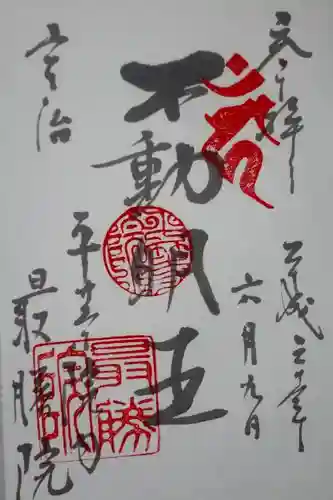 奉拝
平成三十年
六月九日
不動明王
宇治
平等院
最勝院
最勝院